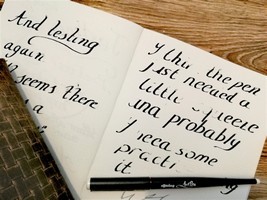 And testing
again
seems there
a
I think the pen
just needed a
little
and probably
I need some
practi
it.